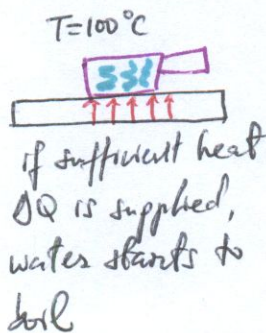 T=100°C
if sufficient heat
ΔQ is supplied,
water starts to
boil